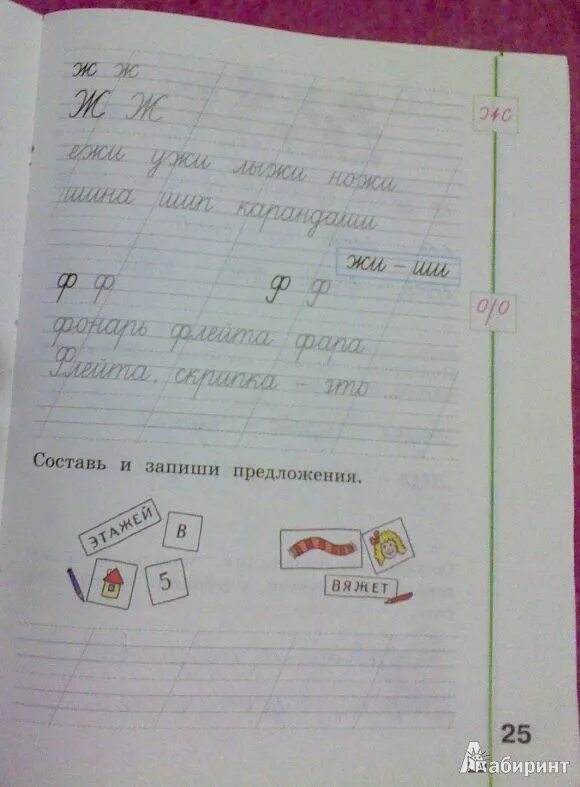 ж ж
Ж Ж
ежи ужи лыжи ножи
шина шип карандаши
жи – ши
ф ф ф ф
фонарь флейта фара
Флейта, скрипка – это ...
Составь и запиши предложения.
ЭТАЖЕЙ В
5
ВЯЖЕТ
25
Лабиринт